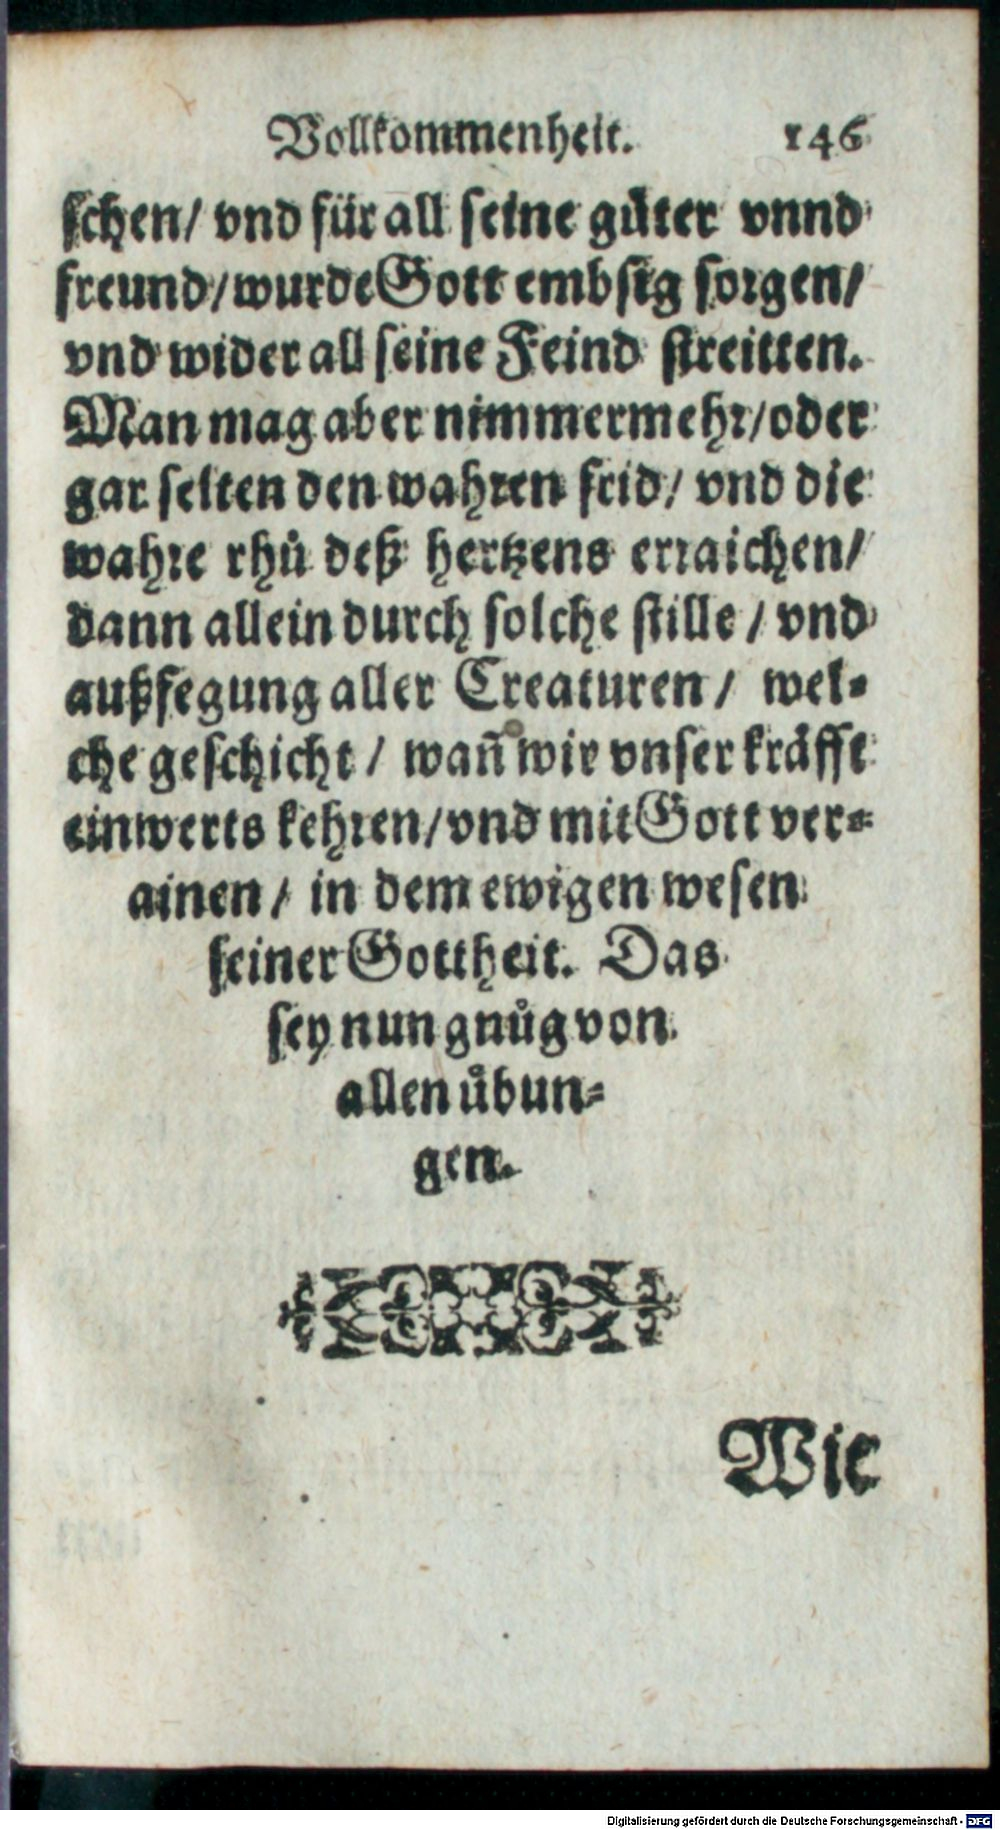 Vollkommenheit. 146
schen/ vnd für all seine güter vnnd
freund/wurde Gott embsig sorgen/
vnd wider all seine Feind streitten.
Man mag aber nimmermehr/oder
gar selten den wahren frid/ vnd die
wahre rhů deß hertzens erraichen/
dann allein durch solche stille / vnd
außfegung aller Creaturen / wel-
che geschicht / wañ wir vnser kräfft
einwerts kehren/vnd mit Gott ver-
ainen / in dem ewigen wesen
seiner Gottheit. Das
sey nun gnůg von
allen übun-
gen.
Wie
Digitalisierung gefördert durch die Deutsche Forschungsgemeinschaft - DFG